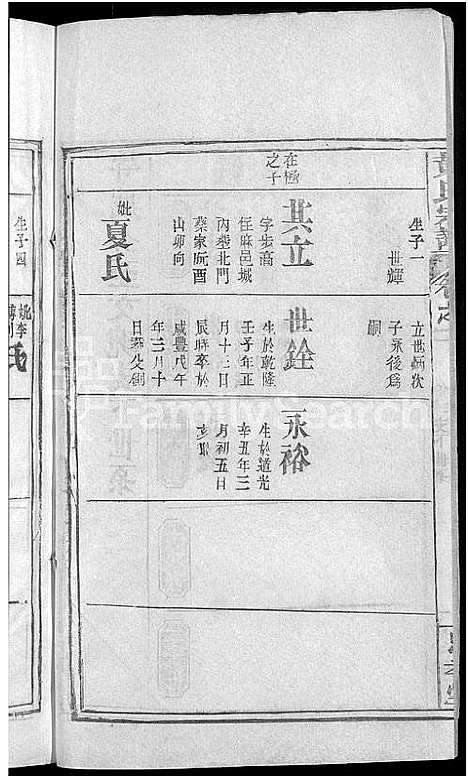 生子一
世輝
在
之子
其立
字步高
住麻邑城
內葬北門
蔡家阮酉
山卯向
妣
夏氏
立世炳次
子承後爲
嗣
世銓
生於乾隆
壬子年正
月十三日
辰時卒於
咸豐戊午
年三月十
日葬父側
永裕
生於道光
辛丑年三
月初五日
亥時
生子四
FamilySearch